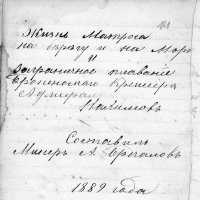 14
Жизнь Матроса
на берегу и на Море
и
заграничное плавание
броненоснаго Крейсера
Адмирал
Нахимовъ
Составилъ
Минеръ А.
1889 года